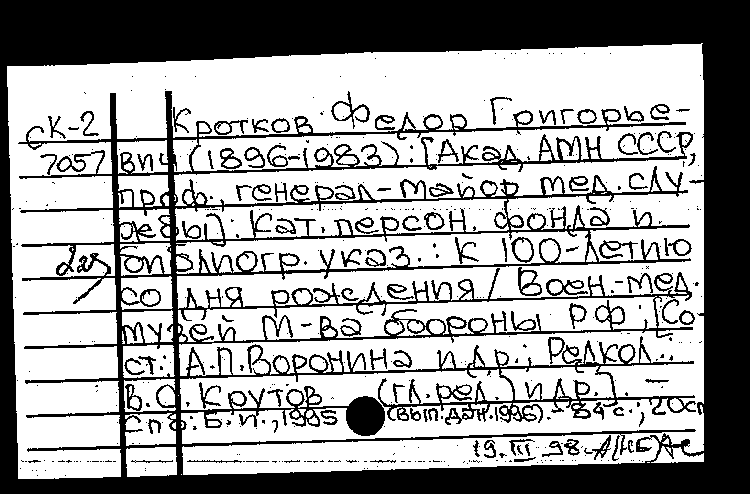 СК-2 Кротков Федор Григорье-
7057 вич (1896-1983): [Акад. АМН СССР,
проф., генерал-майор мед. слу-
жбы]: Кат. персон. фонда и
библиогр. указ.: К 100-летию
со дня рождения / Воен.-мед.
музей М-ва обороны РФ; [Со-
ст.: А.П.Воронина и др.; Редкол.:
В.О. Крутов (гл.ред.) и др.]. —
СПб: Б.и., 1995 (вып.дан.1996). - 84 с.; 20см
19.III-98